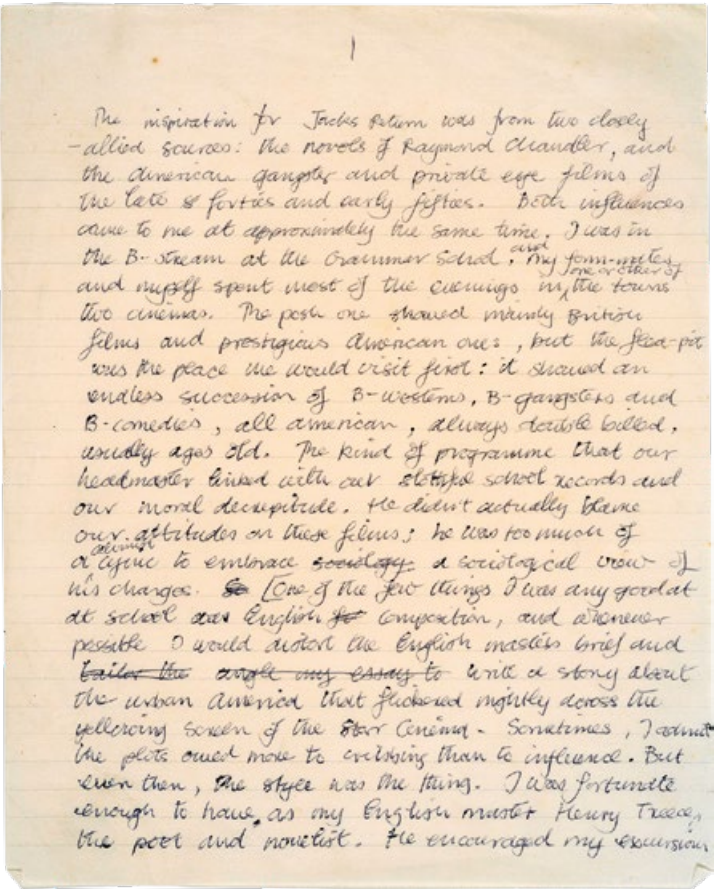 1
The inspiration for Jacks Return was from two closely
-allied sources: the novels of Raymond Chandler, and
the American gangster and private eye films of
the late forties and early fifties. Both influences
came to me at approximately the same time. I was in
the B-stream at the Grammar School, and my form-mates
and myself spent most of the evenings in one or other of the towns
two cinemas. The posh one showed mainly British
films and prestigious American ones, but the flea-pit
was the place we would visit first: it showed an
endless succession of B-westerns, B-gangsters and
B-comedies, all american, always double billed,
usually ages old. The kind of programme that our
headmaster linked with our slothful school records and
our moral decrepitude. He didn't actually blame
our attitudes on these films; he was too much of
a cynic to embrace sociology. a sociological view of
his charges. So [One of the few things I was any good at
at school was English composition, and whenever
possible I would distort the English masters brief and
tailor the angle my essay to write a story about
the urban America that flickered nightly across the
yellowing screen of the Star Cinema. Sometimes, I admit
the plots owed more to cribbing than to influence. But
even then, the style was the thing. I was fortunate
enough to have, as my English master Henry Treece,
the poet and novelist. He encouraged my excursions